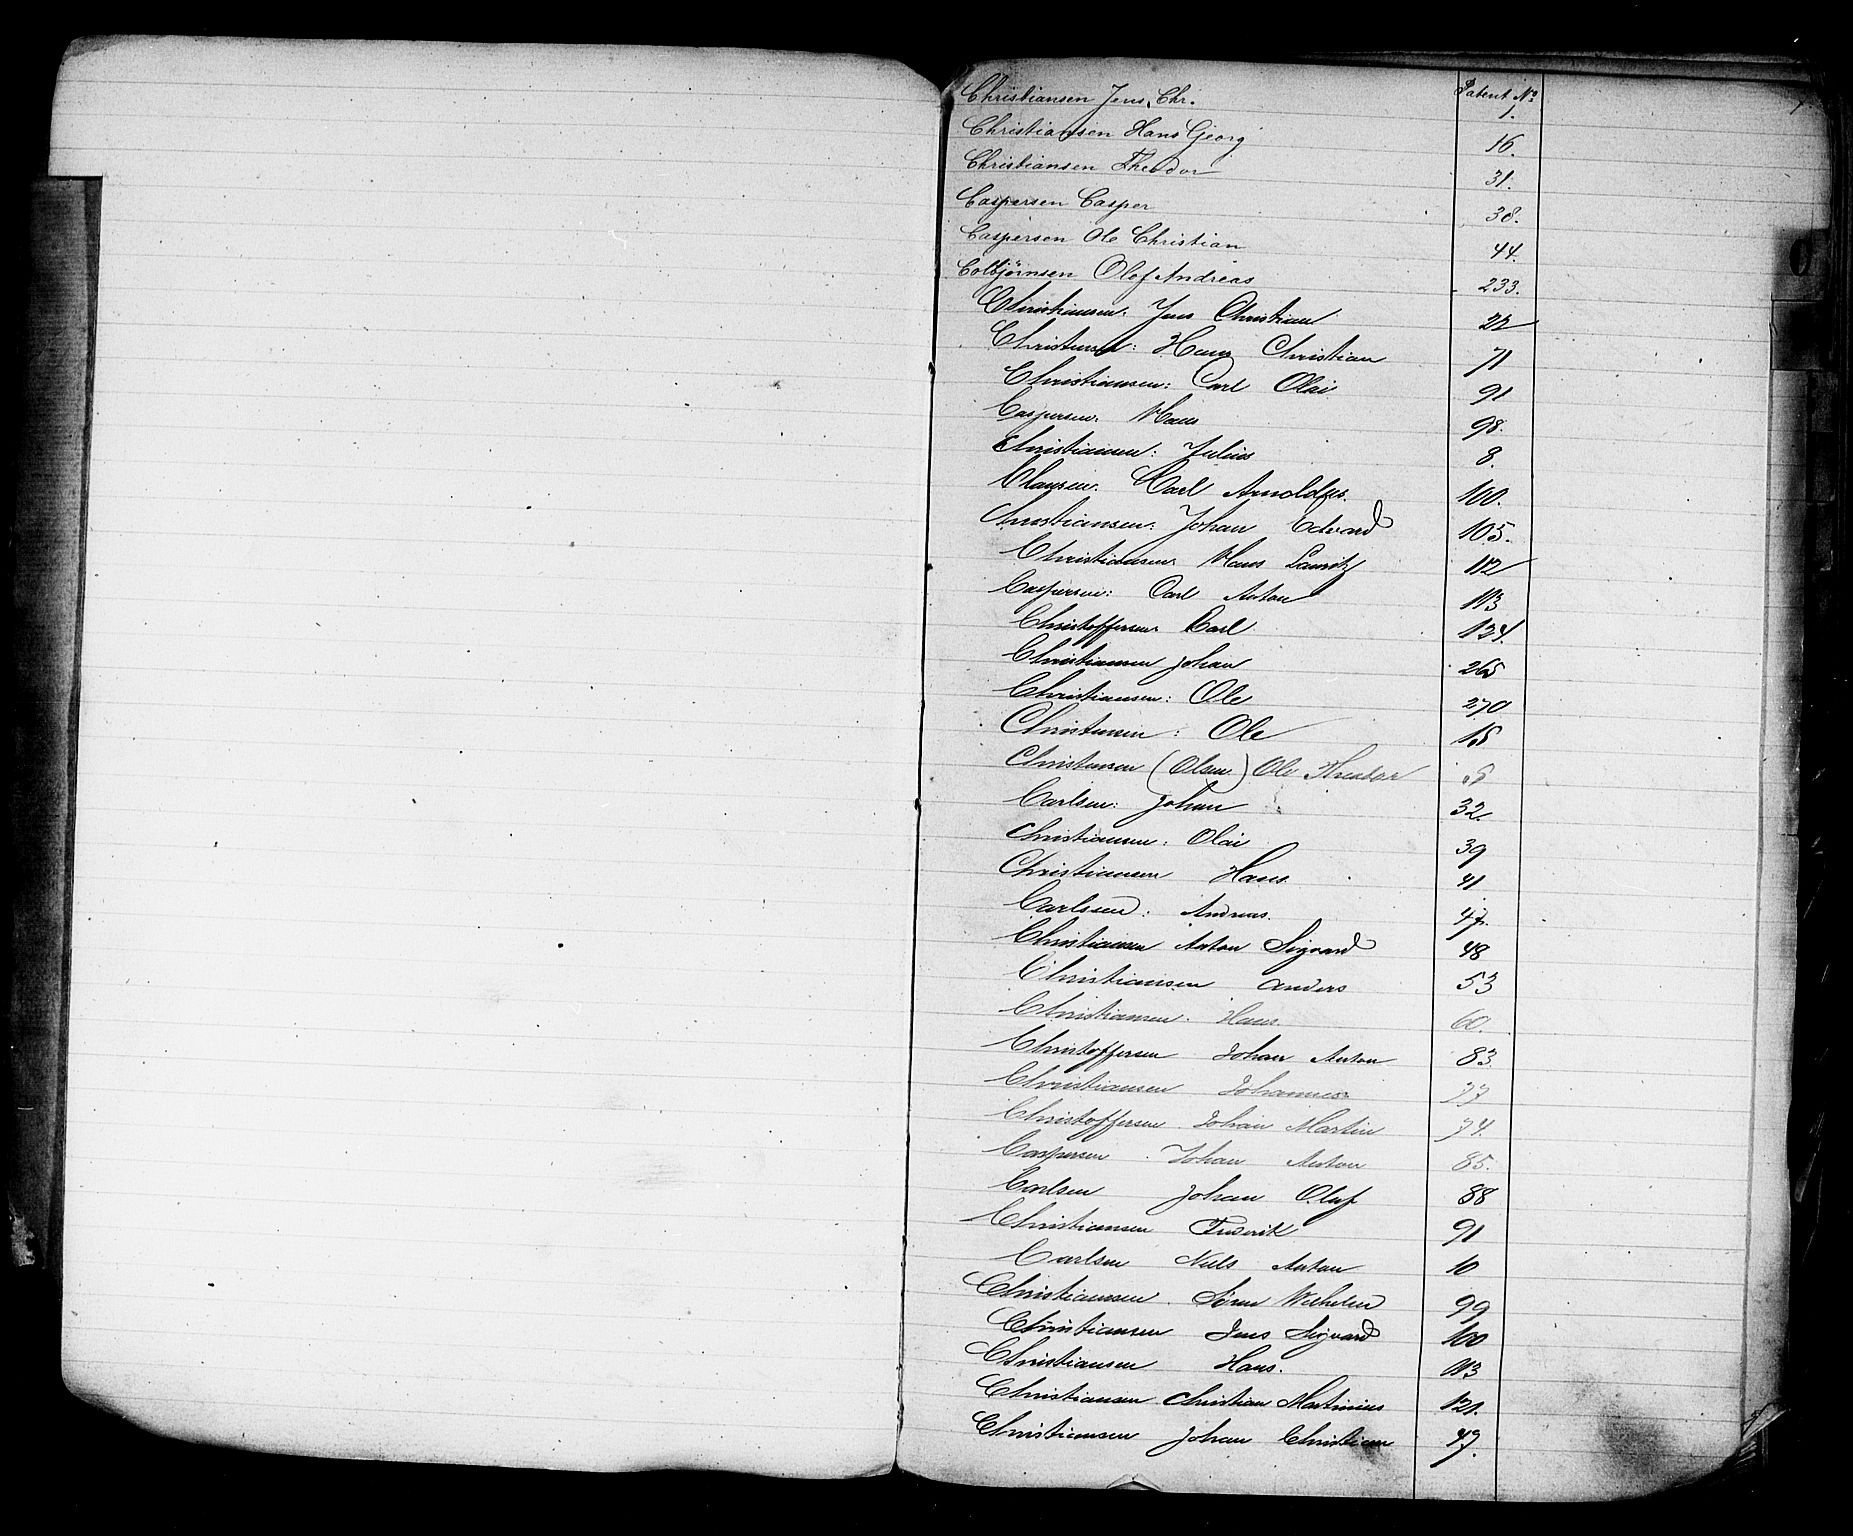 Patent No
Christiansen Jens Chr. 1.
Christiansen Hans Georg 16.
Christiansen Theodor 31.
Caspersen Casper 38.
Caspersen Ole Christian 44.
Colbjørnsen Olof Andreas 233.
Christiansen: Jens Christian 22
Christensen: Hans Christian 71
Christiansen: Carl Olai 91
Caspersen: Hans 98.
Christiansen: Julius 8.
Clausen. Carl Arnoldus. 100.
Christiansen: Johan Edvard 105.
Christiansen. Hans Lauritz 112
Caspersen: Carl Anton 113
Christoffersen. Carl 124.
Christiansen Johan 265
Christiansen: Ole 270
Christensen: Ole 15
Christensen (Olsen) Ole Theodor
Carlsen: Johan 32.
Christiansen: Olai 39
Christiansen Hans. 41
Carlssen: Andreas. 47.
Christiansen Anton Sigvard 48
Christiansen Anders 53
Christiansen. Hans. 60.
Christoffersen Johan Anton 83.
Christiansen Johannes. 77
Christoffersen. Johan Martin 74.
Caspersen. Johan Anton 85.
Carlsen Johan Oluf 88
Christiansen Fredrik 91
Carlsen Niels Anton 10
Christiansen. Søren Wilhelm 99
Christiansen Jens Sigvard 100
Christiansen Hans. 113
Christiansen Christian Martinius 121.
Christiansen Johan Christian 47.